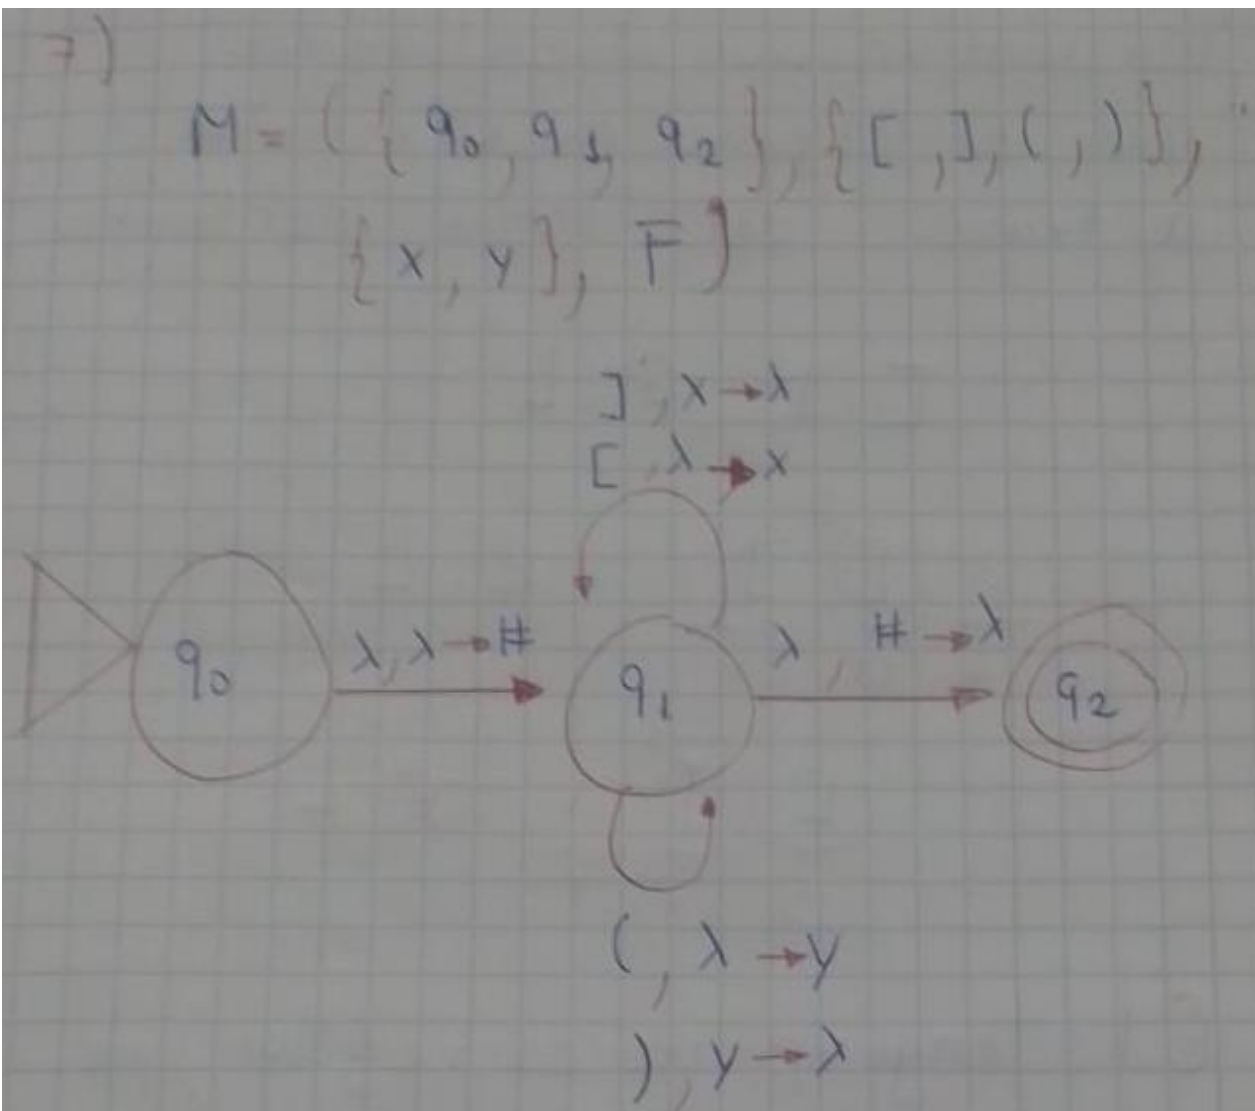 7)
M = ({q₀, q₁, q₂}, {[, ], (, )},
{x, y}, F)
], x → λ
[, λ → x
q₀ λ, λ → # q₁ λ, # → λ q₂
(, λ → y
), y → λ